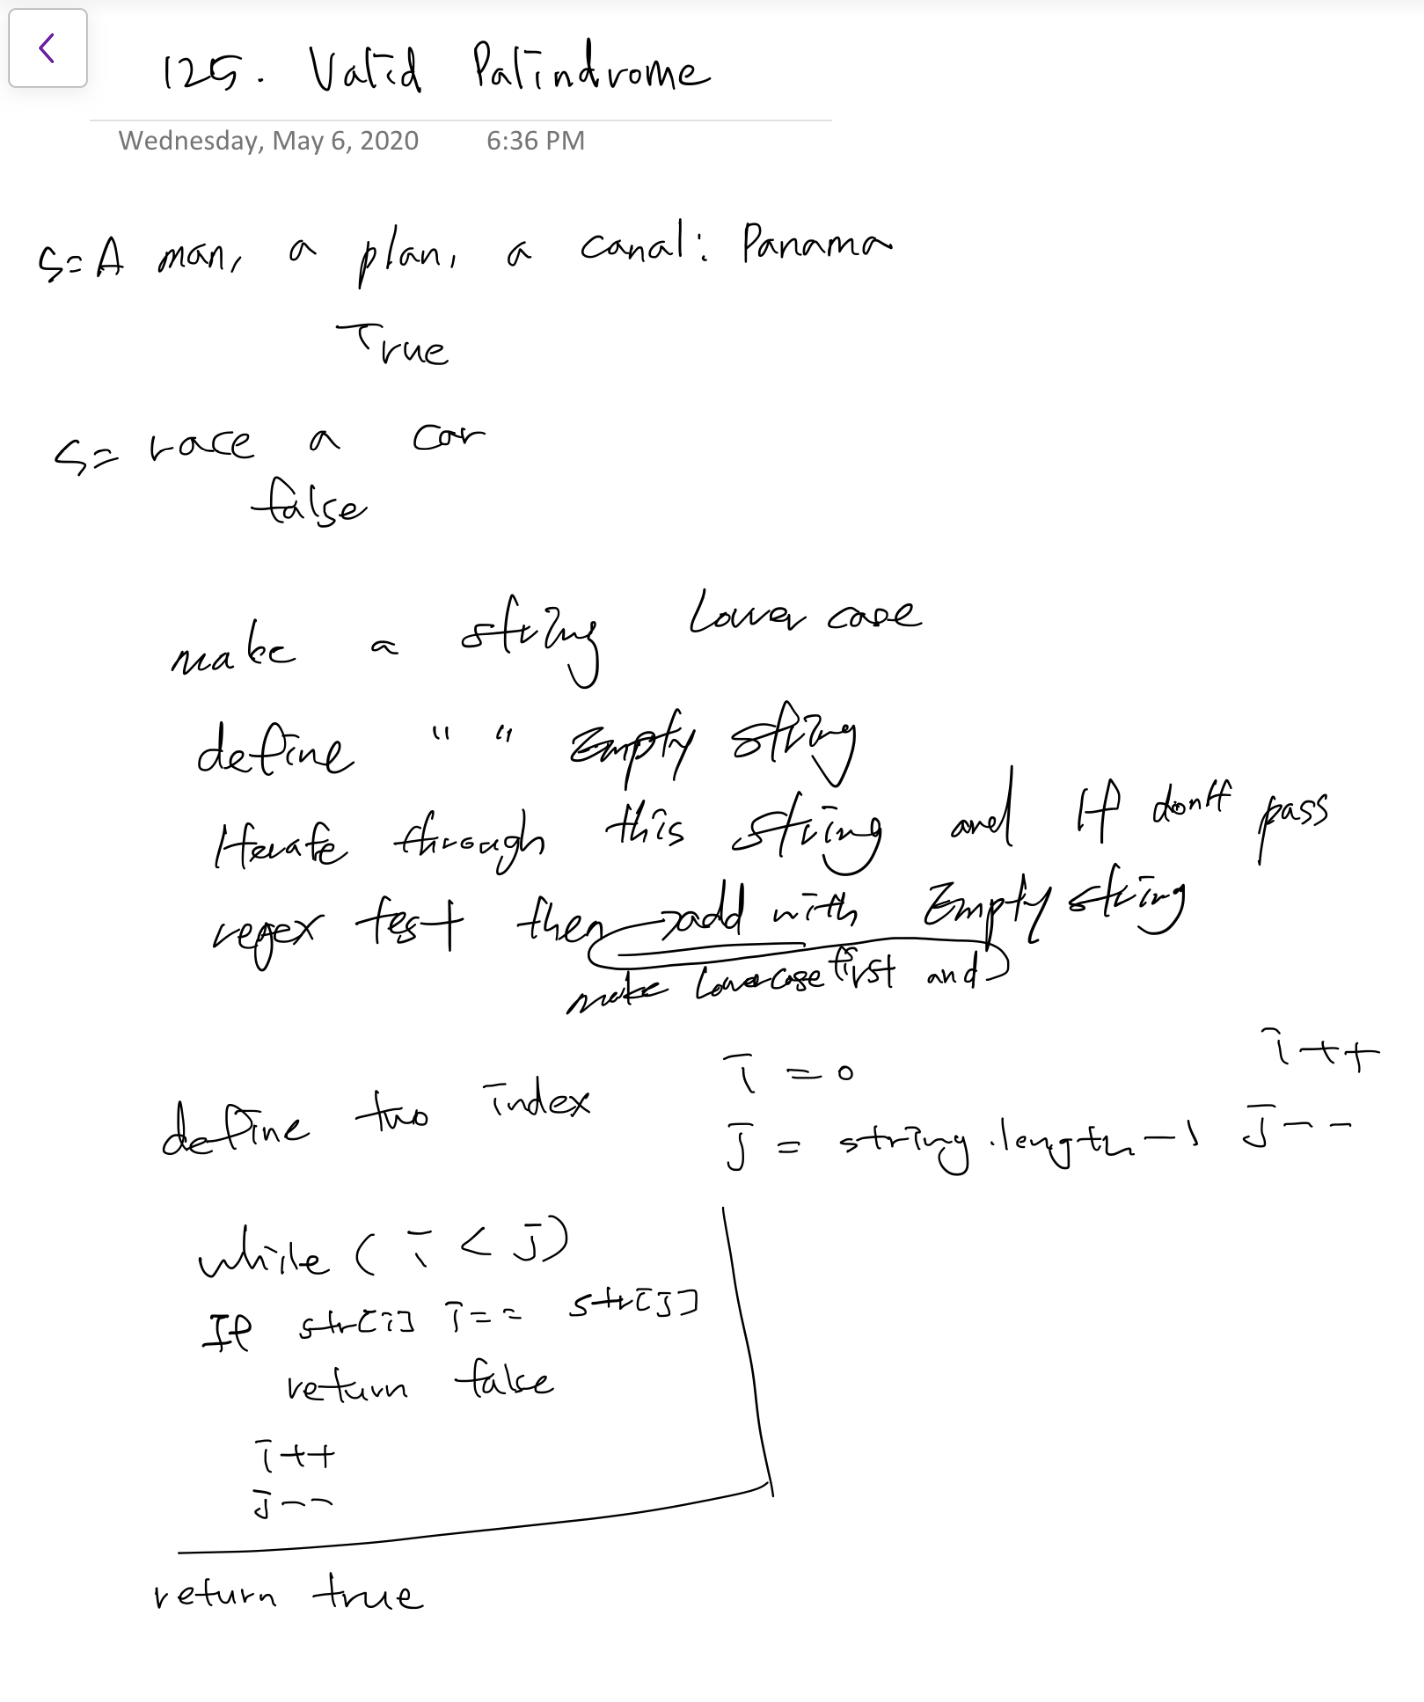 125. Valid Palindrome
Wednesday, May 6, 2020 6:36 PM
S= A man, a plan, a canal: Panama
True
S= race a car
false
make a string Lower case
define " " Empty string
Iterate through this string and If don't pass
regex test then add with Empty string
make Lowercase first and
define two index i = 0 i++
j = string.length-1 j--
while ( i < j )
If str[i] !== str[j]
return false
i++
j--
return true